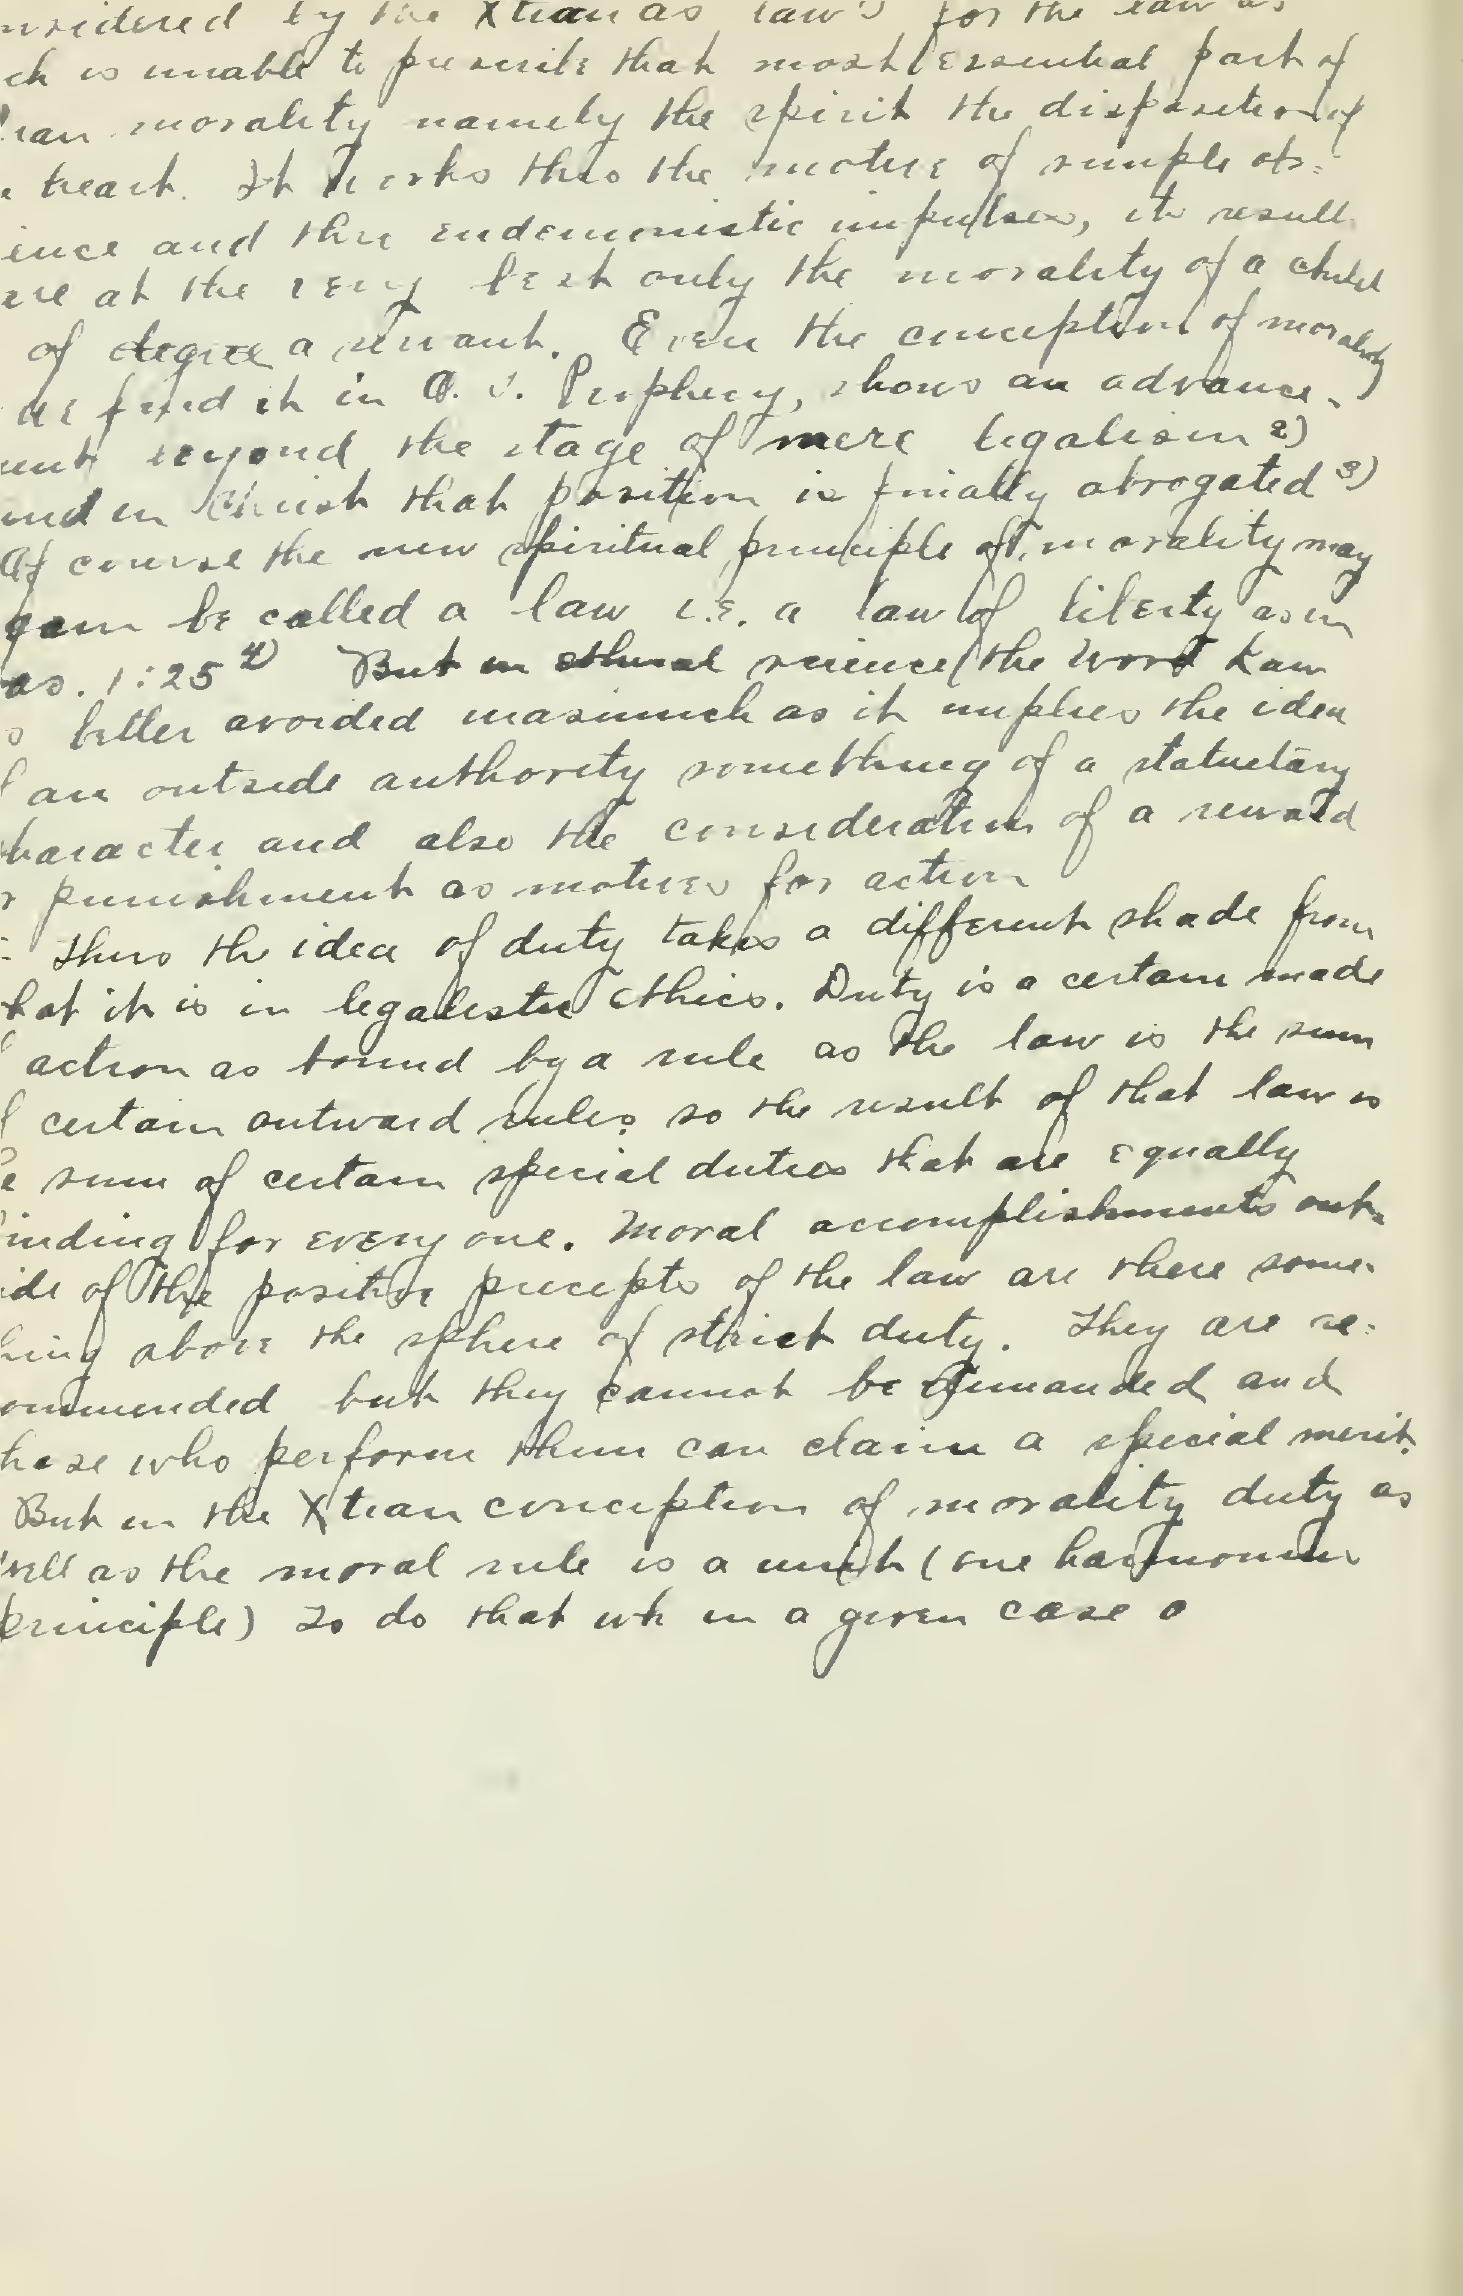 nsidered by the Xtian as law 1) for the law as
ch is unable to prescribe that most essential part of
tian morality namely the spirit the disposition of
e heart. It works thro the motive of simple ob=
ience and thru eudemonistic impulses, its result
are at the very best only the morality of a child
of degree a servant. Even the conception of morality
as find it in O. T. Prophecy, shows an advance-
ment beyond the stage of mere legalism 2)
and in Christ that position is finally abrogated 3)
Of course the new spiritual principle of morality may
gain be called a law i.e. a law of liberty as in
as. 1:25 4) But in ethical science the word Law
s better avoided inasmuch as it implies the idea
f an outside authority something of a statuetary
haracter and also the consideration of a reward
r punishment as motives for action
= Thus the idea of duty takes a different shade from
hat it is in legalistic Ethics. Duty is a certain mode
f action as bound by a rule as the law is the sum
f certain outward rules so the result of that law is
e sum of certain special duties that are equally
inding for every one. Moral accomplishments out=
ide of the positive precepts of the law are there some-
hing above the sphere of strict duty. They are re=
ommended but they cannot be demanded and
hose who perform them can claim a special merit.
But in the Xtian conception of morality duty as
well as the moral rule is a unit (one harmonious
principle) To do that wh in a given case o